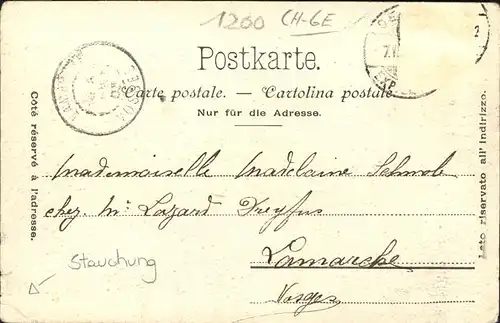 1200 CH-GE
Postkarte.
Carte postale. — Cartolina postale.
Nur für die Adresse.
Côté réservé à l'adresse.
Mademoiselle Madelaine Schmole
chez Mr Lazard Dreyfus
Lamarche
Vosges
Lato riservato all' indirizzo.
Stauchung